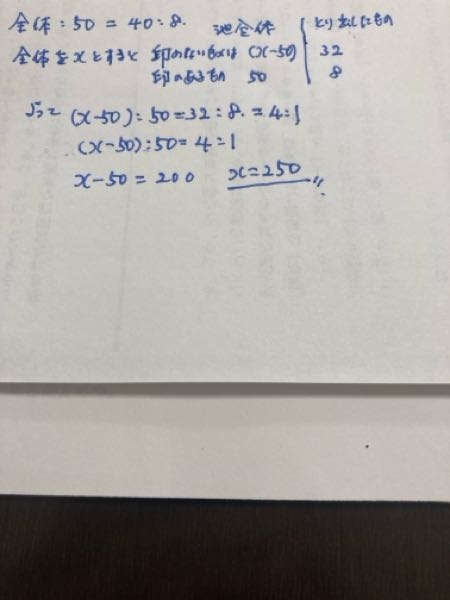 全体:50 = 40:8.
池全体 とり出したもの
全体をxとすると 印のないものは (x-50) 32
印のあるもの 50 8
よって (x-50):50=32:8.=4:1
(x-50):50=4:1
x-50=200 x=250